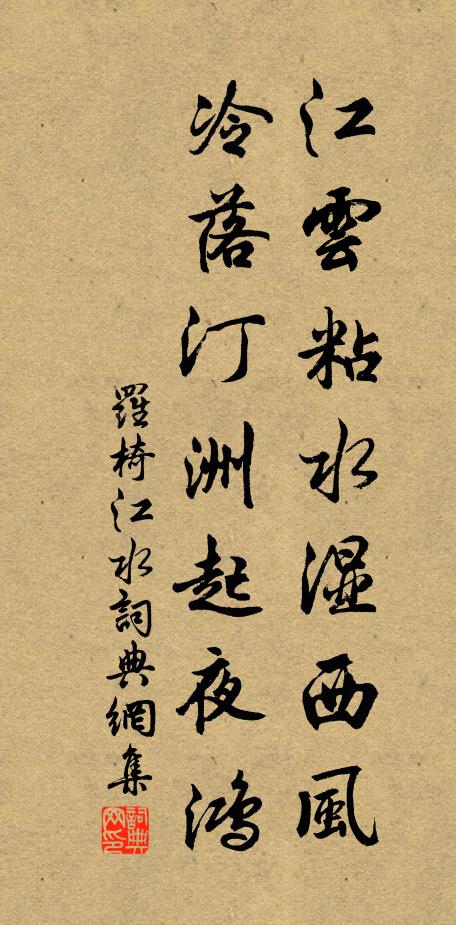 江雲粘水湿西風
冷落汀洲起夜鴻
羅椅江水詞典網集
詞典网印